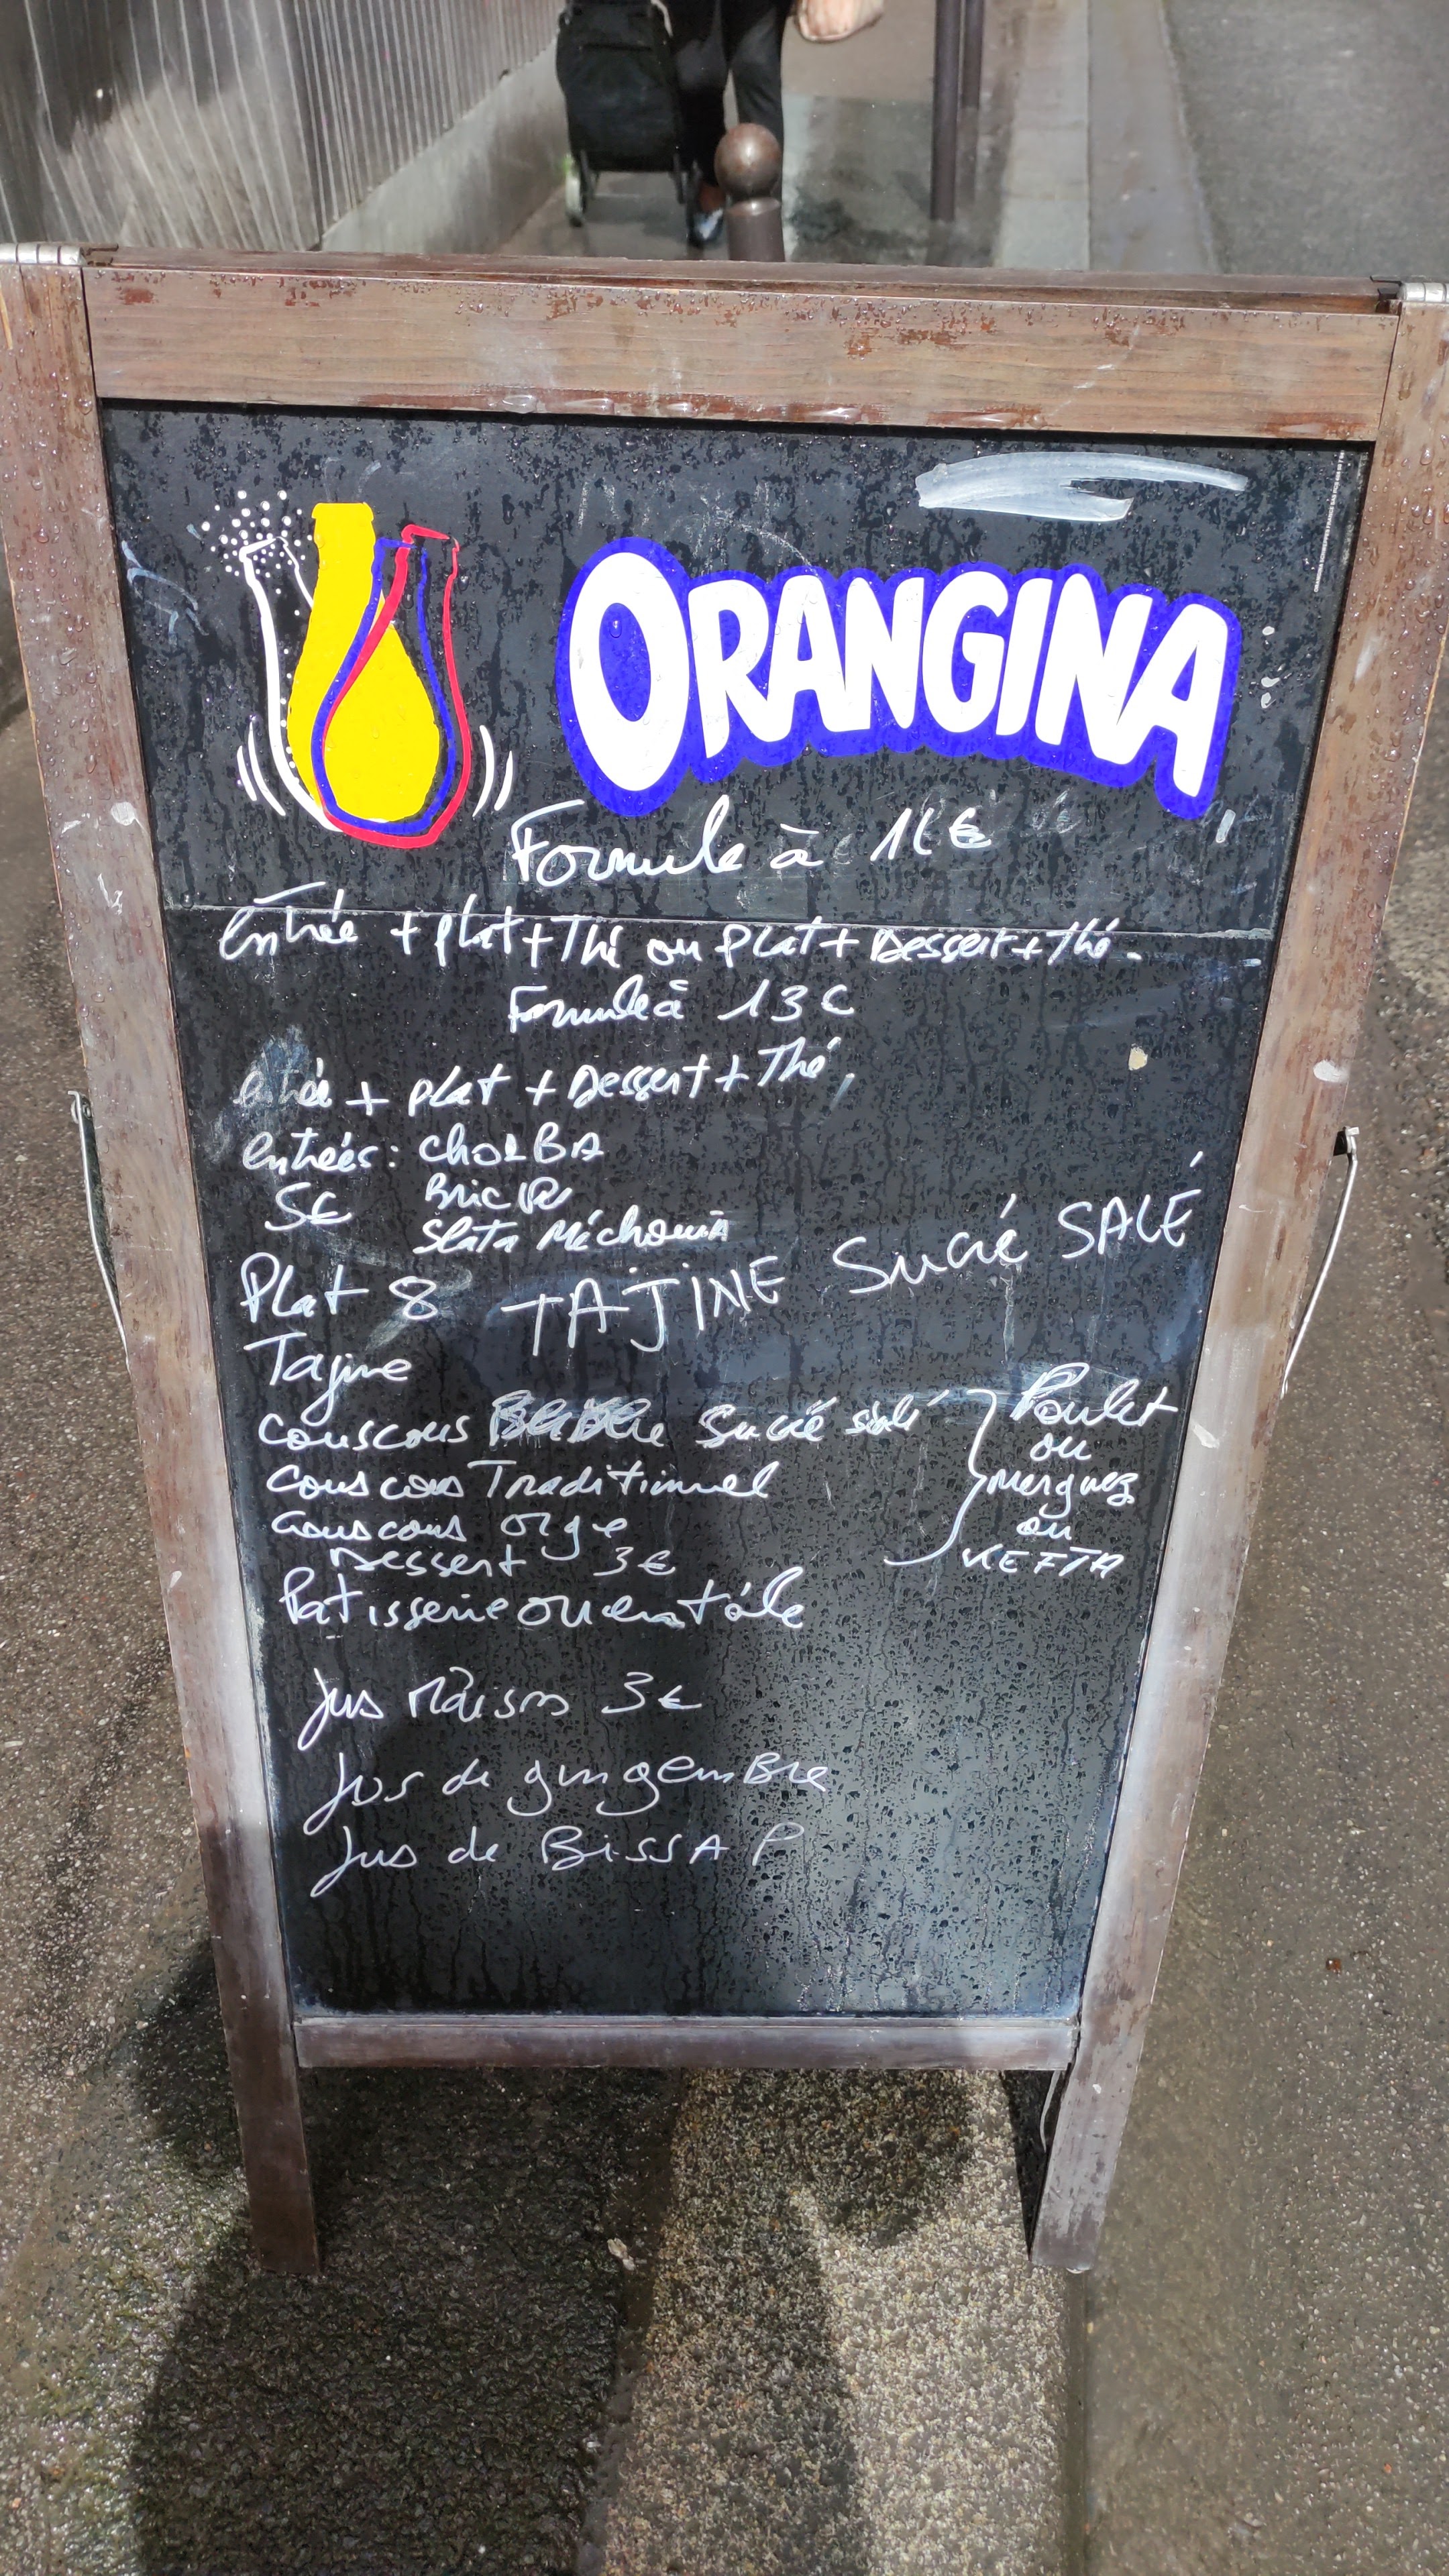 ORANGINA
Formule à 11€
Entrée + plat + Thé ou plat + Dessert + Thé.
Formule à 13€
entrée + plat + Dessert + Thé,
entrées: choRBA
5€ Brick
Slata Méchouia
Plat 8 TAJINE Sucré SALÉ
Tajine
couscous Sucré salé Poulet
ou
couscous Traditionnel merguez
couscous orge ou
Dessert 3€ KEFTA
Patisserie orientale
Jus Maison 3€
Jus de gingemBre
Jus de BissAP